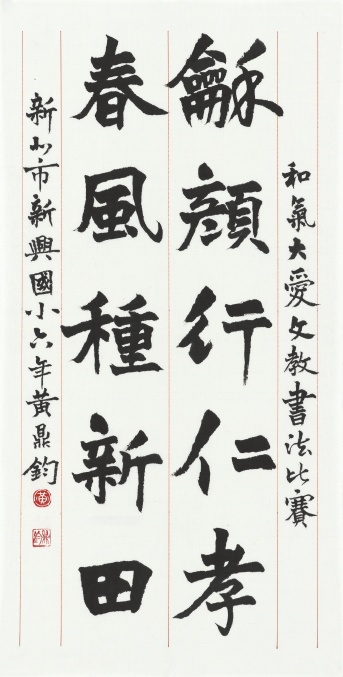 和氣大愛文教書法比賽
龢顏行仁孝
春風種新田
新北市新興國小六年黃鼎鈞
黃